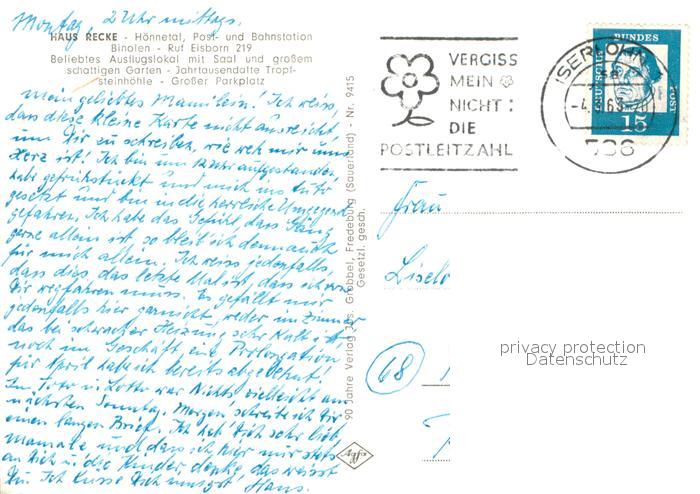 Montag, 2 Uhr mittags.
HAUS RECKE - Hönnetal, Post- und Bahnstation
Binolen - Ruf Eisborn 219
Beliebtes Ausflugslokal mit Saal und großem
schattigen Garten - Jahrtausendalte Tropf-
steinhöhle - Großer Parkplatz
Mein geliebtes Mammilein! Ich weiss,
dass diese kleine Karte nicht ausreicht
um Dir zu schreiben, wie weh mir ums
Herz ist! Ich bin um 12 Uhr aufgestanden
habe gefrühstückt und mich ins Auto
gesetzt und bin in die herrliche Umgegend
gefahren. Ich habe das Gefühl, dass
gerne allein ist, so bleib ich dennauch
für mich allein. Ich weiss jedenfalls,
dass dies das letzte Mal ist, dass ich von
Dir wegfahren muss. Es gefällt mir
jedenfalls hier garnicht, weder im Zimmer
das bei schwacher Heizung sehr kalt ist
noch im Geschäft, eine Prolongation
für April habe ich bereits abgelehnt!
Im Toto u. Lotto war Nichts, vielleicht am
nächsten Sonntag. Morgen schreibe ich Dir
einen langen Brief. Ich hab' Dich sehr lieb
Mamale und dass ich hier nur stets
an Dich u. die Kinder denke, das weisst
Du. Ich küsse Dich innigst Hans.
90 Jahre Verlag Jos. Grobbel, Fredeburg (Sauerland) - Nr. 9415
Gesetzl. gesch.
Agfa
VERGISS
MEIN
NICHT:
DIE
POSTLEITZAHL
ISERLOHN
-4.3.63
586
DEUTSCHE
BUNDES
POST
15
Frau
Liselo
(68)
privacy protection
Datenschutz